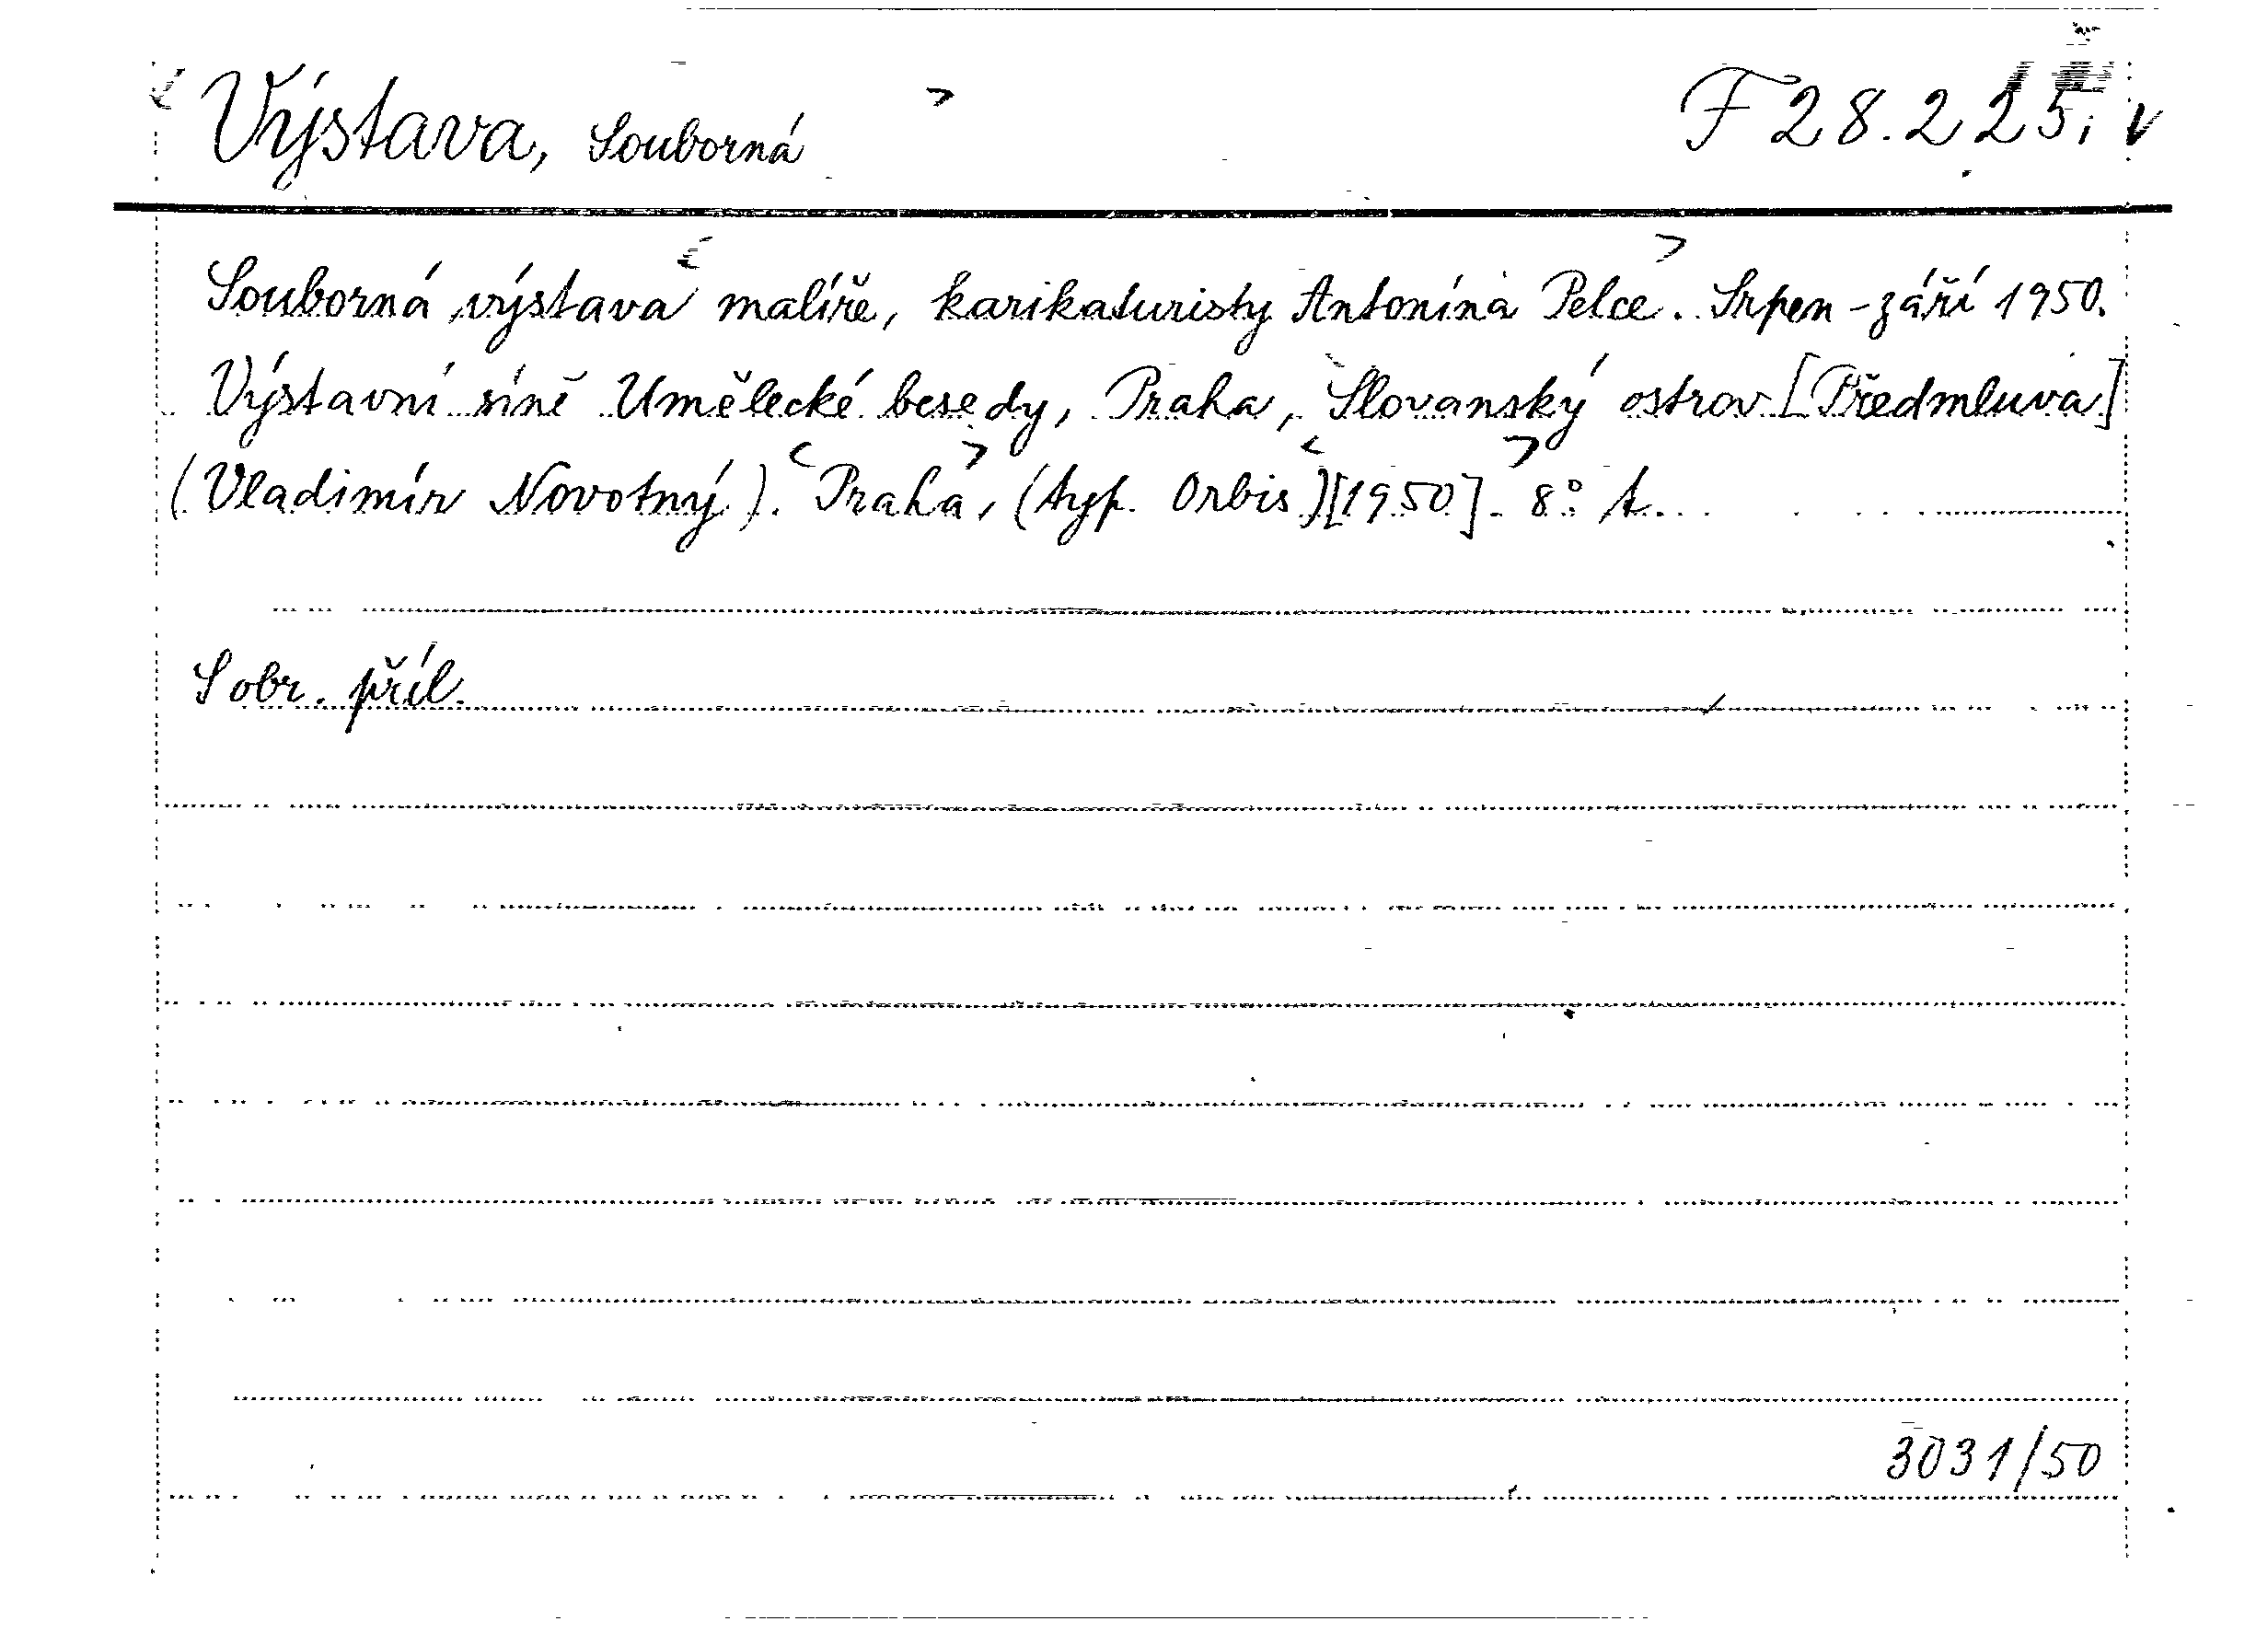 <Výstava, Souborná> F 28.225; v
Souborná výstava <malíře, karikaturisty Antonína Pelce>. Srpen - září 1950.
Výstavní síně Umělecké besedy, Praha, Slovanský ostrov [Předmluva]
(Vladimír Novotný). <Praha>, (typ. Orbis) <[1950]>. 8° t.
S obr. příl.
3031/50